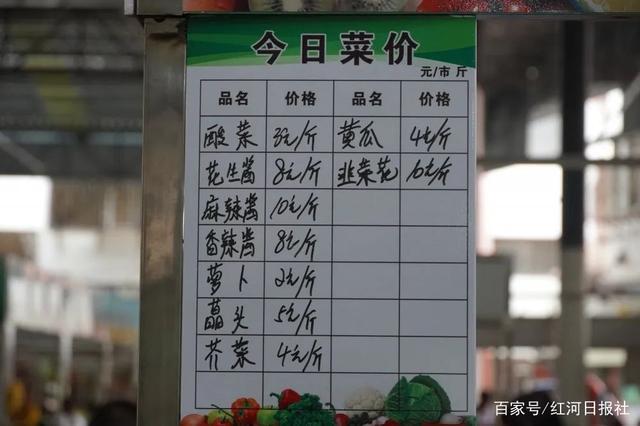 今日菜价
元/市斤
品名 价格 品名 价格
酸菜 3元/斤 黄瓜 4元/斤
花生酱 8元/斤 韭菜花 10元/斤
麻辣酱 10元/斤
香辣酱 8元/斤
萝卜 2元/斤
藠头 5元/斤
芥菜 4元/斤
百家号/红河日报社